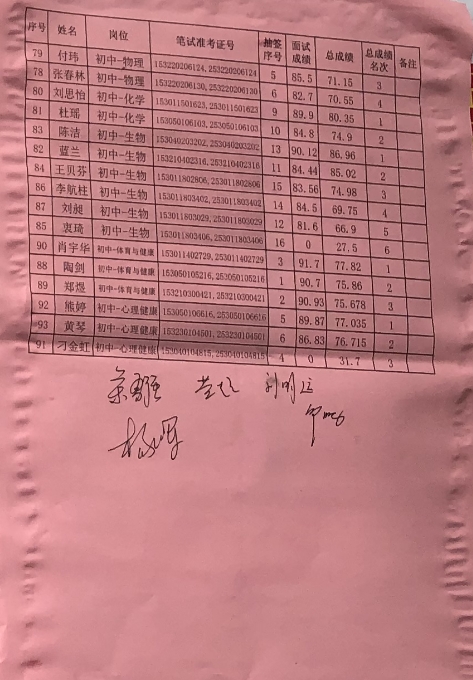 序号 姓名 岗位 笔试准考证号 抽签序号 面试成绩 总成绩 总成绩名次 备注
79 付玮 初中-物理 153220206124,253220206124 5 85.5 71.15 3
78 张春林 初中-物理 153220206130,253220206130 6 82.7 70.55 4
80 刘思怡 初中-化学 153011501623,253011501623 9 89.9 80.35 1
81 杜瑶 初中-化学 153050106103,253050106103 10 84.8 74.9 2
83 陈洁 初中-生物 153040203202,253040203202 13 90.12 86.96 1
82 蓝兰 初中-生物 153210402316,253210402316 11 84.44 85.02 2
84 王贝芬 初中-生物 153011802806,253011802806 15 83.56 74.98 3
86 李航柱 初中-生物 153011803402,253011803402 14 84.5 69.75 4
87 刘昶 初中-生物 153011803029,253011803029 12 81.6 66.9 5
85 衷琦 初中-生物 153011803406,253011803406 16 0 27.5 6
90 肖宇华 初中-体育与健康 153011402729,253011402729 3 91.7 77.82 1
88 陶剑 初中-体育与健康 153050105216,253050105216 1 90.7 75.86 2
89 郑煜 初中-体育与健康 153210300421,253210300421 2 90.93 75.678 3
92 熊婷 初中-心理健康 153050106616,253050106616 5 89.87 77.035 1
93 黄琴 初中-心理健康 153230104501,253230104501 6 86.83 76.715 2
91 刁金虹 初中-心理健康 153040104815,253040104815 4 0 31.7 3